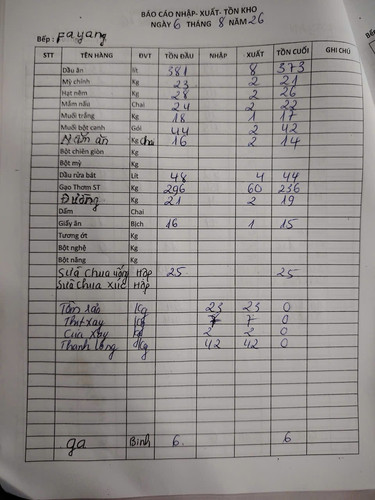 BÁO CÁO NHẬP- XUẤT- TỒN KHO
NGÀY 6 THÁNG 8 NĂM 26
Bếp: payang
STT TÊN HÀNG ĐVT TỒN ĐẦU NHẬP XUẤT TỒN CUỐI GHI CHÚ
Dầu ăn lít 381 8 373
Mỳ chính Kg 23 2 21
Hạt nêm Kg 28 2 26
Mắm nấu Chai 24 2 22
Muối trắng Kg 18 1 17
Muối bột canh Gói 44 2 42
Kg Chai 16 2 14
Bột chiên giòn Kg
Bột mỳ Kg
Dầu rửa bát Lít 48 4 44
Gạo Thơm ST Kg 296 60 236
Đường Kg 21 2 19
Dấm Chai
Giấy ăn Bịch 16 1 15
Tương ớt Kg
Bột nghệ Kg
Bột năng Kg
Sữa chua uống Hộp 25 25
Sữa chua xúc Hộp
Tôm Kg 23 23 0
Thịt xay Kg 7 7 0
Cua xay Kg 2 2 0
Thanh long Kg 42 42 0
ga Bình 6. 6